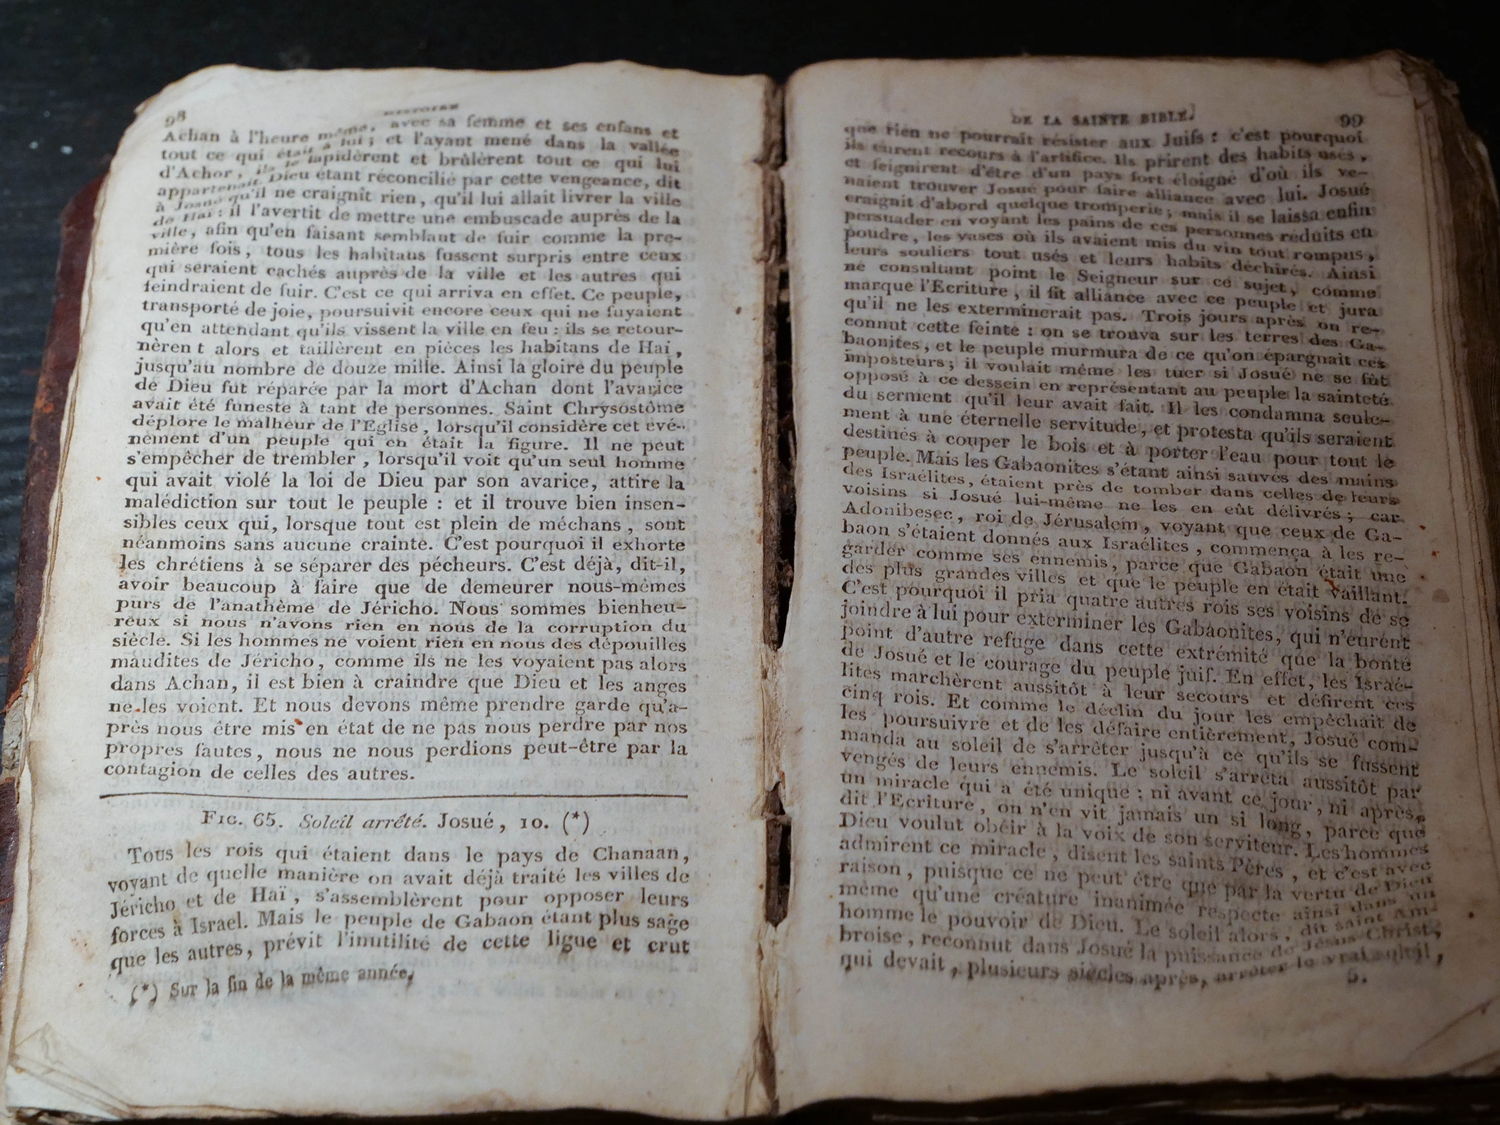 98
HISTOIRE
Achan à l'heure même, avec sa femme et ses enfans et
tout ce qui était à lui ; et l'ayant mené dans la vallée
d'Achor, ils le lapidèrent et brûlèrent tout ce qui lui
appartenait. Dieu étant réconcilié par cette vengeance, dit
à Josué qu'il ne craignît rien, qu'il lui allait livrer la ville
de Haï : il l'avertit de mettre une embuscade auprès de la
ville, afin qu'en faisant semblant de fuir comme la pre-
mière fois, tous les habitans fussent surpris entre ceux
qui seraient cachés auprès de la ville et les autres qui
feindraient de fuir. C'est ce qui arriva en effet. Ce peuple,
transporté de joie, poursuivit encore ceux qui ne fuyaient
qu'en attendant qu'ils vissent la ville en feu : ils se retour-
nèren t alors et taillèrent en pièces les habitans de Hai,
jusqu'au nombre de douze mille. Ainsi la gloire du peuple
de Dieu fut réparée par la mort d'Achan dont l'avarice
avait été funeste à tant de personnes. Saint Chrysostôme
déplore le malheur de l'Eglise, lorsqu'il considère cet évé-
nément d'un peuple qui en était la figure. Il ne peut
s'empêcher de trembler, lorsqu'il voit qu'un seul homme
qui avait violé la loi de Dieu par son avarice, attire la
malédiction sur tout le peuple : et il trouve bien insen-
sibles ceux qui, lorsque tout est plein de méchans, sont
néanmoins sans aucune crainte. C'est pourquoi il exhorte
les chrétiens à se séparer des pécheurs. C'est déjà, dit-il,
avoir beaucoup à faire que de demeurer nous-mêmes
purs de l'anathème de Jéricho. Nous sommes bienheu-
reux si nous n'avons rien en nous de la corruption du
siècle. Si les hommes ne voient rien en nous des dépouilles
maudites de Jéricho, comme ils ne les voyaient pas alors
dans Achan, il est bien à craindre que Dieu et les anges
ne les voient. Et nous devons même prendre garde qu'a-
près nous être mis en état de ne pas nous perdre par nos
propres fautes, nous ne nous perdions peut-être par la
contagion de celles des autres.
FIG. 65. Soleil arrêté. Josué, 10. (*)
Tous les rois qui étaient dans le pays de Chanaan,
voyant de quelle manière on avait déjà traité les villes de
Jéricho et de Haï, s'assemblèrent pour opposer leurs
forces à Israel. Mais le peuple de Gabaon étant plus sage
que les autres, prévit l'inutilité de cette ligue et crut
(*) Sur la fin de la même année.
DE LA SAINTE BIBLE.
99
que rien ne pourrait résister aux Juifs : c'est pourquoi
ils eurent recours à l'artifice. Ils prirent des habits usés,
et feignirent d'être d'un pays fort éloigné d'où ils ve-
naient trouver Josué pour faire alliance avec lui. Josué
craignit d'abord quelque tromperie ; mais il se laissa enfin
persuader en voyant les pains de ces personnes réduits en
poudre, les vases où ils avaient mis du vin tout rompus,
leurs souliers tout usés et leurs habits déchirés. Ainsi
ne consultant point le Seigneur sur ce sujet, comme
marque l'Ecriture, il fit alliance avec ce peuple et jura
qu'il ne les exterminerait pas. Trois jours après on re-
connut cette feinte : on se trouva sur les terres des Ga-
baonites, et le peuple murmura de ce qu'on épargnait ces
imposteurs ; il voulait même les tuer si Josué ne se fût
opposé à ce dessein en représentant au peuple la sainteté
du serment qu'il leur avait fait. Il les condamna seule-
ment à une éternelle servitude, et protesta qu'ils seraient
destinés à couper le bois et à porter l'eau pour tout le
peuple. Mais les Gabaonites s'étant ainsi sauvés des mains
des Israélites, étaient près de tomber dans celles de leurs
voisins si Josué lui-même ne les en eût délivrés ; car
Adonibesec, roi de Jérusalem, voyant que ceux de Ga-
baon s'étaient donnés aux Israélites, commença à les re-
garder comme ses ennemis, parce que Gabaon était une
des plus grandes villes et que le peuple en était vaillant.
C'est pourquoi il pria quatre autres rois ses voisins de se
joindre à lui pour exterminer les Gabaonites, qui n'eurent
point d'autre refuge dans cette extrémité que la bonté
de Josué et le courage du peuple juif. En effet, les Israé-
lites marchèrent aussitôt à leur secours et défirent ces
cinq rois. Et comme le déclin du jour les empêchait de
les poursuivre et de les défaire entièrement, Josué com-
manda au soleil de s'arrêter jusqu'à ce qu'ils se fussent
vengés de leurs ennemis. Le soleil s'arrêta aussitôt par
un miracle qui a été unique ; ni avant ce jour, ni après,
dit l'Ecriture, on n'en vit jamais un si long, parce que
Dieu voulut obéir à la voix de son serviteur. Les hommes
admirent ce miracle, disent les saints Pères, et c'est avec
raison, puisque ce ne peut être que par la vertu de Dieu
même qu'une créature inanimée respecte ainsi dans un
homme le pouvoir de Dieu. Le soleil alors, dit saint Am-
broise, reconnut dans Josué la puissance de Jésus-Christ,
qui devait, plusieurs siècles après, arrêter le vrai soleil,
5.